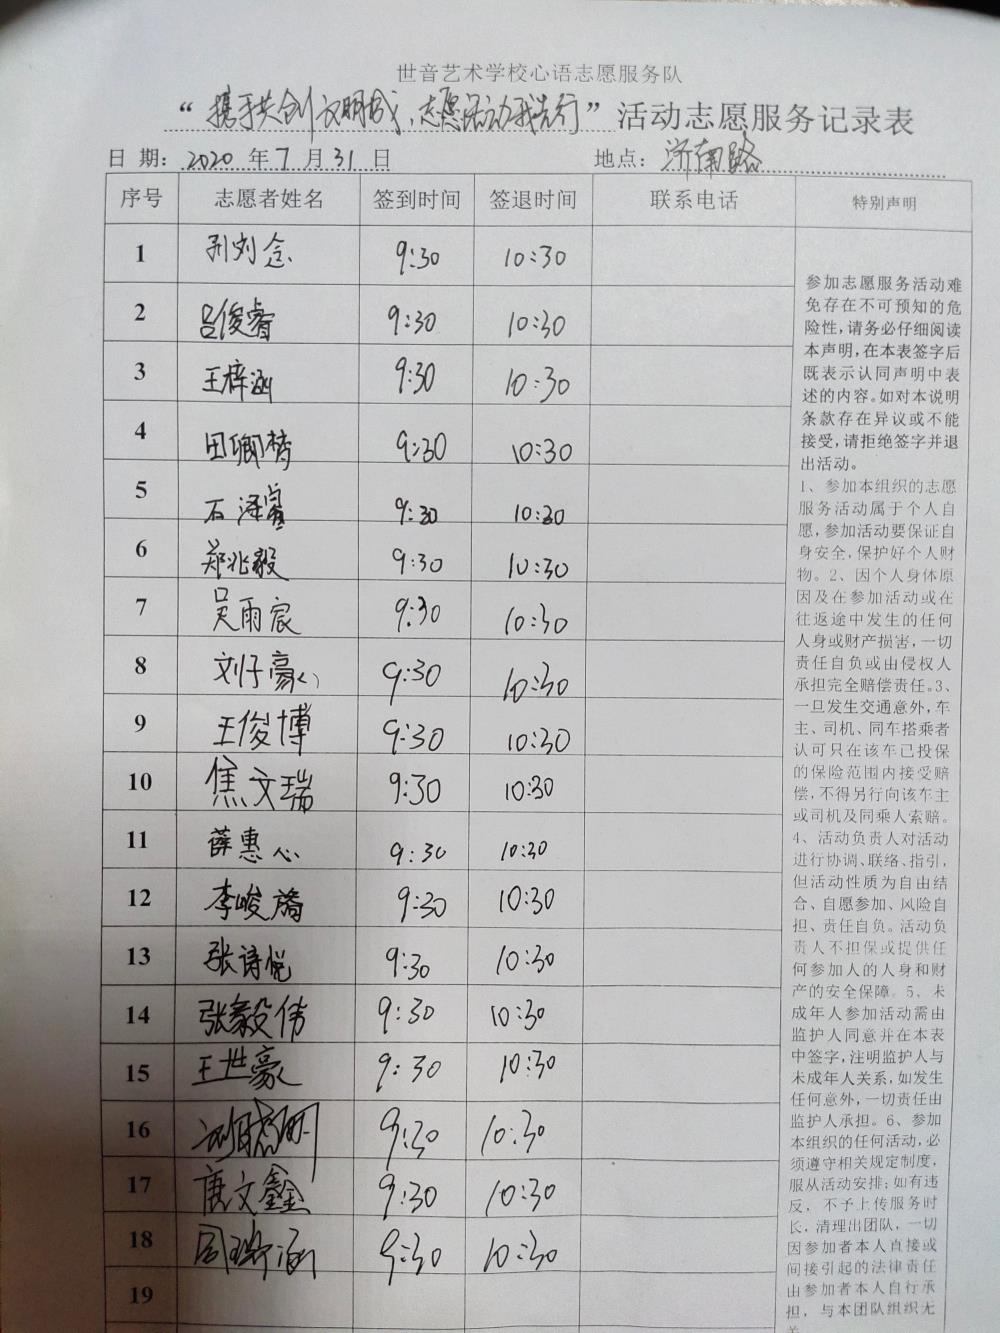 世音艺术学校心语志愿服务队
“携手共创文明城，志愿活动我先行”活动志愿服务记录表
日 期：2020 年 7 月 31 日 地点：济南路
序号 志愿者姓名 签到时间 签退时间 联系电话 特别声明
1 孙刘念 9:30 10:30
2 吕俊睿 9:30 10:30
3 王梓涵 9:30 10:30
4 田卿 9:30 10:30
5 石泽 9:30 10:30
6 郑兆毅 9:30 10:30
7 吴雨宸 9:30 10:30
8 刘子豪 9:30 10:30
9 王俊博 9:30 10:30
10 焦文瑞 9:30 10:30
11 薛惠心 9:30 10:30
12 李峻 9:30 10:30
13 张诗悦 9:30 10:30
14 张毅伟 9:30 10:30
15 王世豪 9:30 10:30
16 9:30 10:30
17 唐文鑫 9:30 10:30
18 周涵 9:30 10:30
19
参加志愿服务活动难
免存在不可预知的危
险性，请务必仔细阅读
本声明，在本表签字后
既表示认同声明中表
述的内容。如对本说明
条款存在异议或不能
接受，请拒绝签字并退
出活动。
1、参加本组织的志愿
服务活动属于个人自
愿，参加活动要保证自
身安全，保护好个人财
物。2、因个人身体原
因及在参加活动或在
往返途中发生的任何
人身或财产损害，一切
责任自负或由侵权人
承担完全赔偿责任。3、
一旦发生交通意外，车
主、司机、同车搭乘者
认可只在该车已投保
的保险范围内接受赔
偿，不得另行向该车主
或司机及同乘人索赔。
4、活动负责人对活动
进行协调、联络、指引，
但活动性质为自由结
合、自愿参加、风险自
担、责任自负。活动负
责人不担保或提供任
何参加人的人身和财
产的安全保障。5、未
成年人参加活动需由
监护人同意并在本表
中签字，注明监护人与
未成年人关系，如发生
任何意外，一切责任由
监护人承担。6、参加
本组织的任何活动，必
须遵守相关规定制度，
服从活动安排；如有违
反，不予上传服务时
长，清理出团队，一切
因参加者本人直接或
间接引起的法律责任
由参加者本人自行承
担，与本团队组织无
关